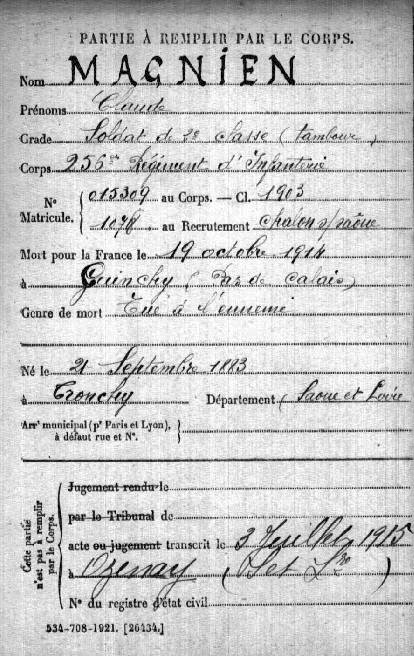 PARTIE À REMPLIR PAR LE CORPS.
Nom MAGNIEN
Prénoms Claude
Grade Soldat de 2e Classe (tambour)
Corps 256me Régiment d'Infanterie
N° Matricule. 015309 au Corps. — Cl. 1903
1078 au Recrutement Chalon s/Saône
Mort pour la France le 19 octobre 1914
à Guinchy (Pas de Calais)
Genre de mort Tué à l'ennemi
Né le 21 Septembre 1883
à Tronchy Département (Saone et Loire
Arrt municipal (pr Paris et Lyon), à défaut rue et N°.
Cette partie n'est pas à remplir par le Corps.
Jugement rendu le
par le Tribunal de
acte ou jugement transcrit le 3 Juillet 1915
à Ozenay (S et Lre)
N° du registre d'état civil
534-708-1921. [26434.]